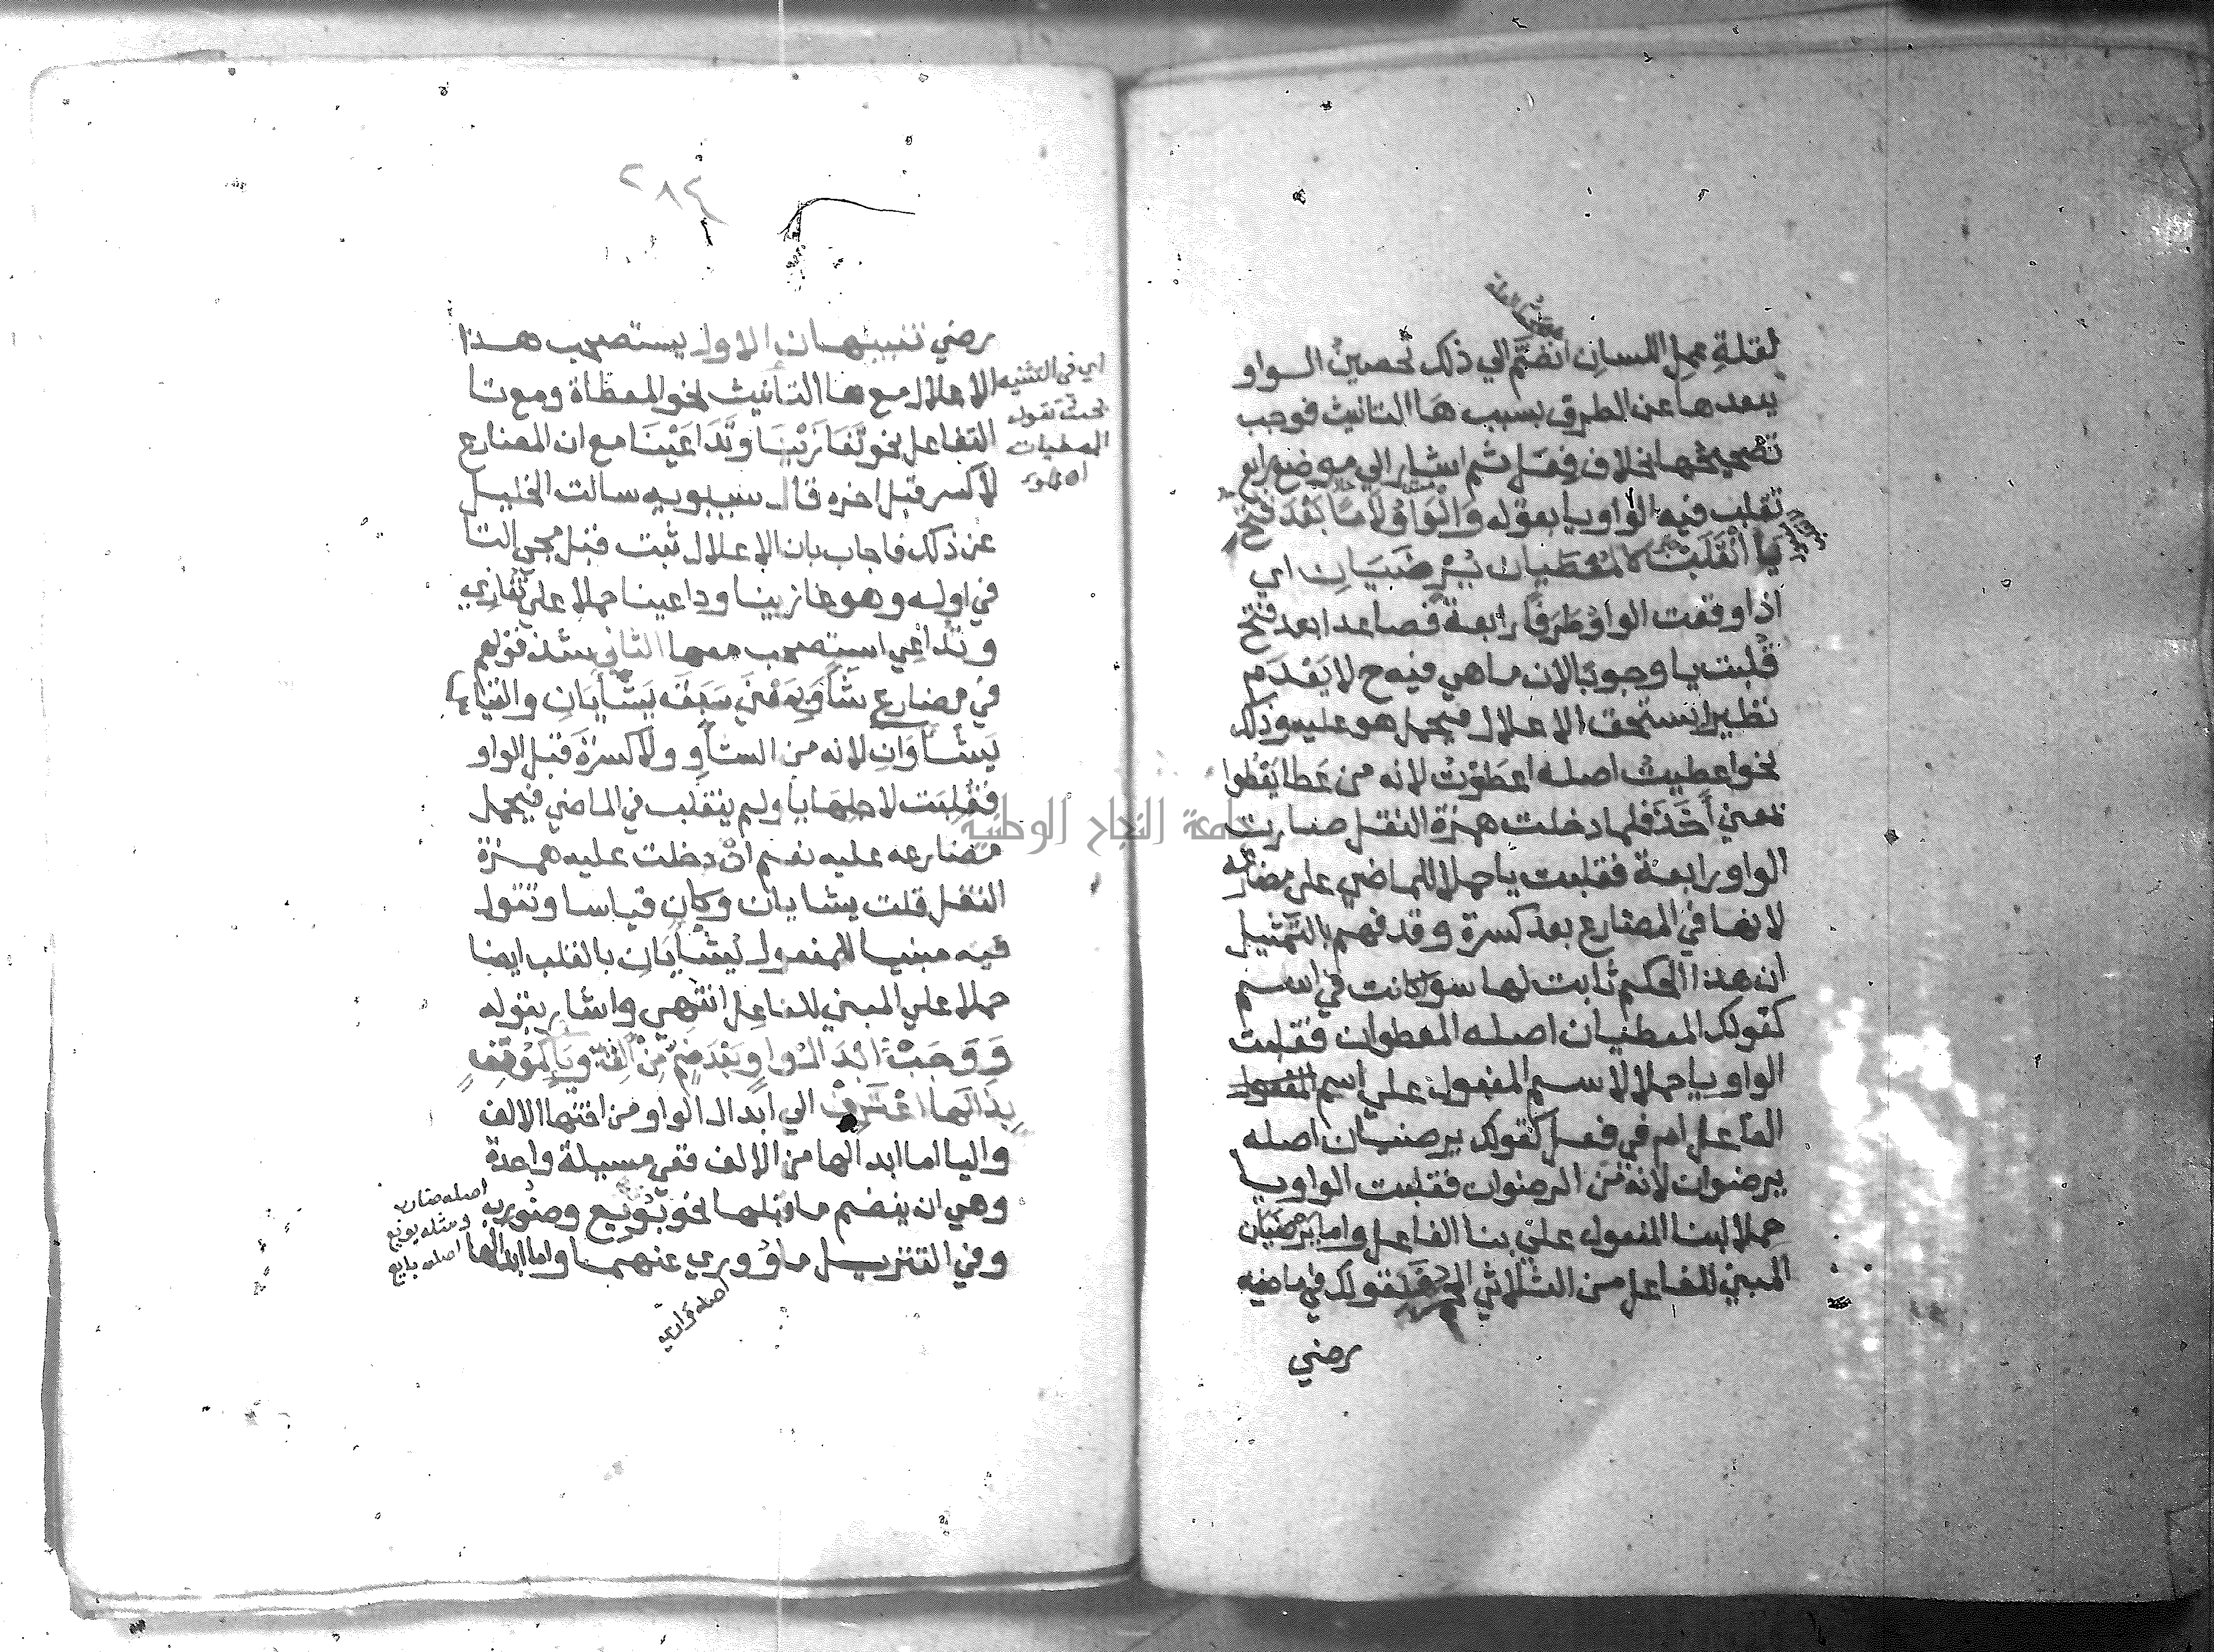 لقلة عمل اللسان انضم الي ذلك تحصين الواو
ببعدها عن الطرف بسبب ها التانيث فوجب
تصحيحها بخلاف فعل ثم اشار الي موضع رابع
تقلب فيه الواو يا بقوله وَالْوَاوُ لَامًا بَعْدَ فَتْحٍ
يَا انْقَلَبْ كالمُعْطَيانِ يُرْضَيَانِ اي
اذا وقعت الواو طَرَفًا رابعة فصاعدا بعد فتح
قُلبت يا وجوبا لان ما هي فيه ح لا يَعْدَم
نظيرا يستحق الاعلال فيحمل هو عليه وذلك
نحو اعطيت اصله اعطَوْتُ لانه من عَطا يَعْطُوا
بمعني أَخَذَ فلما دخلت همزة النقل صارت
الواو رابعة فقلبت يا حملا للماضي علي مضارعه
لانها في المضارع بعد كسرة وقد فهم بالتمثيل
ان هذا الحكم ثابت لها سوا كانت في اسم
كقولك المعطيان اصله المعطوان فقلبت
الواو يا حملا لاسم المفعول علي اسم المفعول
الفاعل ام في فعل كقولك يرضيان اصله
يرضوان لانه من الرضوان فقلبت الواو يا
حملا لبنا المفعول علي بنا الفاعل واما يَرضَيَان
المبني للفاعل من الثلاثي المجرد فلقولك في ماضيه
رضي
٢٨٤
رضي تنبيهان الاول يستصحب هذا
الاعلال مع ها التانيث نحو المعطاة ومع تا
التفاعل نحو تَغَازَيْنَا وتَدَاعَيْنَا مع ان المضارع
لا كسر قبل اخره قال سيبويه سالت الخليل
عن ذلك فاجاب بان الاعلال ثبت قبل مجي التا
في اوله وهو غازينا وداعينا حملا علي نُغازي
ونُداعي استصحب معها الثاني شذ قولهم
في مضارع شَأَوَ بمعني سَبَقَ يَشْأَيَانِ والقياس
يَشْأَوَانِ لانه من الشأو ولا كسرة قبل الواو
فقُلِبَت لاجلها يا ولم ينقلب في الماضي فيحمل
مضارعه عليه نعم ان دخلت عليه همزة
النقل قلت يشايان وكان قياسا وتقول
فيه مبنيا للمفعول يُشْأَيَانِ بالقلب ايضا
حملا علي المبني للفاعل انتهي واشار بقوله
وَوَجَبْ اِبْدَالُ وَاوٍ بَعْدَ ضَمٍّ مِنْ أَلِفْ وَيَا كَمُوقِنٍ
بِذَا لَهَا اعْتَرِفْ الي ابدال الواو من اختها الالف
واليا اما ابدالها من الالف ففي مسيلة واحدة
وهي ان ينضم ما قبلها نحو بُويع وضُورب
وفي التنزيل ما وُوري عنهما واما ابدالها
اي في التثنيه
بحيث تقول
المعطيات
اصله ضارب
ومثله بويع
اصله بايع
اصله وَاري
جامعة النجاح الوطنية